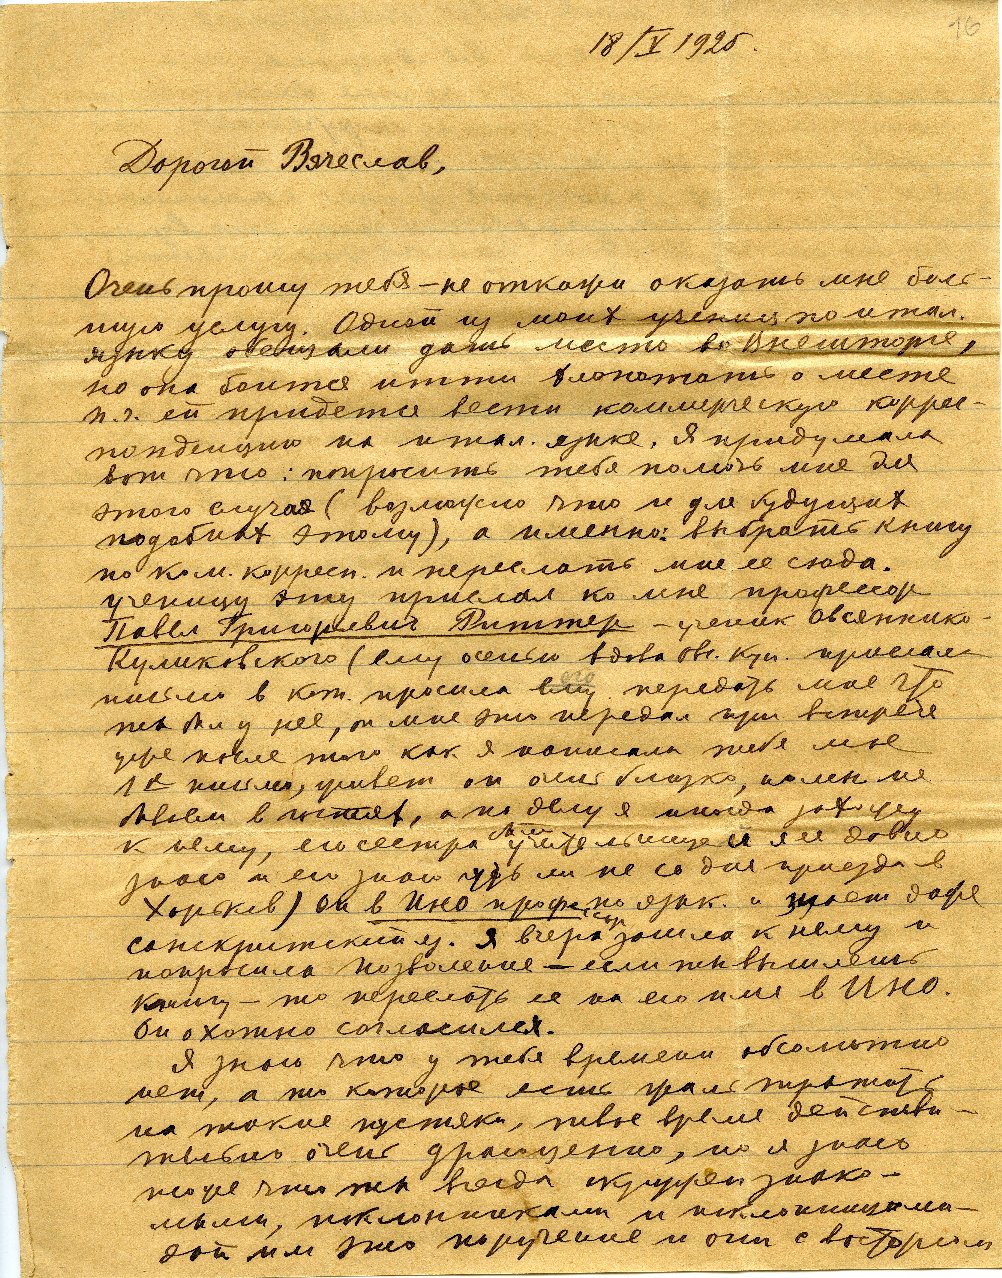 16
18/V 1925.
Дорогой Вячеслав,
Очень прошу тебя – не откажи оказать мне боль-
шую услугу. Одной из моих учениц по итал.
языку обещали дать место во Внешторге,
но она боится итти хлопотать о месте
п.ч. ей придется вести коммерческую коррес-
понденцию на итал. языке. Я придумала
вот что: попросить тебя помочь мне для
этого случая (возможно что и для будущих
подобных этому), а именно: выбрать книгу
по ком. корресп. и переслать мне ее сюда.
Ученицу эту прислал ко мне профессор
Павел Григорьевич Риттер – ученик Овсяннико-
Куликовского (ему осенью вдова Ов. Кул. прислала
письмо в кот. просила его передать мне что
ты был у нее, он мне это передал при встрече
уже после того как я написала тебе мое
1е письмо, живет он очень близко, но мы не
бываем в гостях, а по делу я иногда захожу
к нему, его сестра учительница и я ее давно
знаю и его знаю чуть ли не со дня приезда в
Харьков) Он в ИНО профессор по язык. и знает даже
санскритский яз. Я вчера зашла к нему и
попросила позволение – если ты вышлешь
книгу – то переслать ее на его имя в ИНО.
Он охотно согласился.
Я знаю что у тебя времени абсолютно
нет, а то которое есть жаль тратить
на такие пустяки, твое время действи-
тельно очень драгоценно, но я знаю
тоже что ты всегда окружен знако-
мыми, поклонниками и поклонницами –
дай им это поручение и они с восторгом